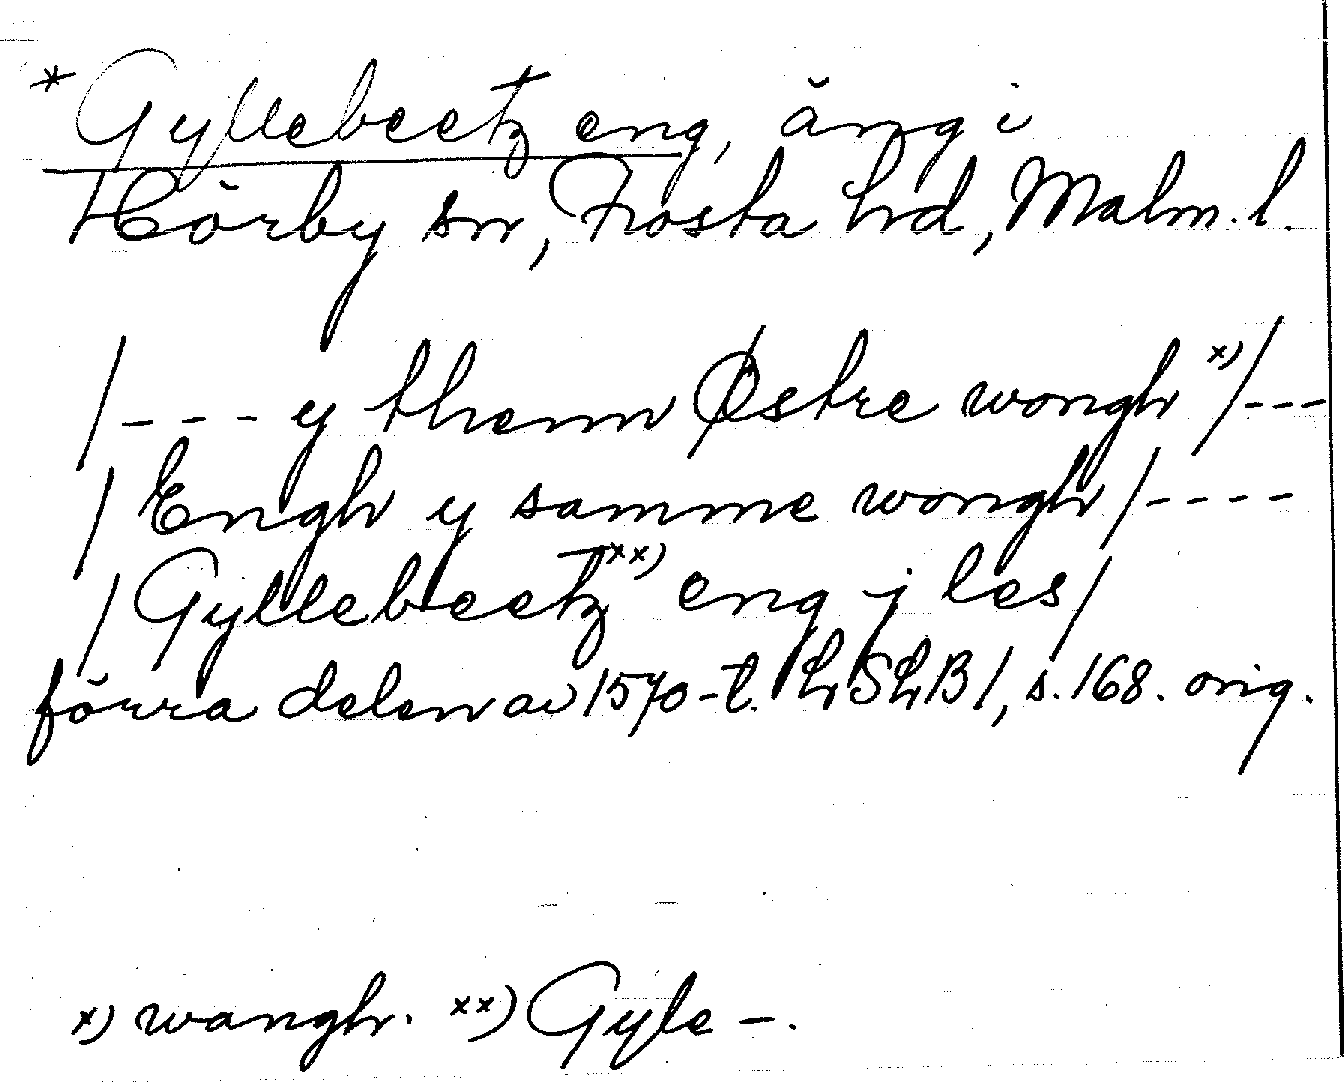 * Gyllebeetz eng, äng i
Hörby sn, Frosta hrd, Malm. l.
/--- y thenn Østre wongh x)/---
/Engh y samme wongh/----
/Gyllebeetz xx) eng j les/
förra delen av 1570-t. LSLB 1, s. 168. orig.
x) wangh. xx) Gyle-.